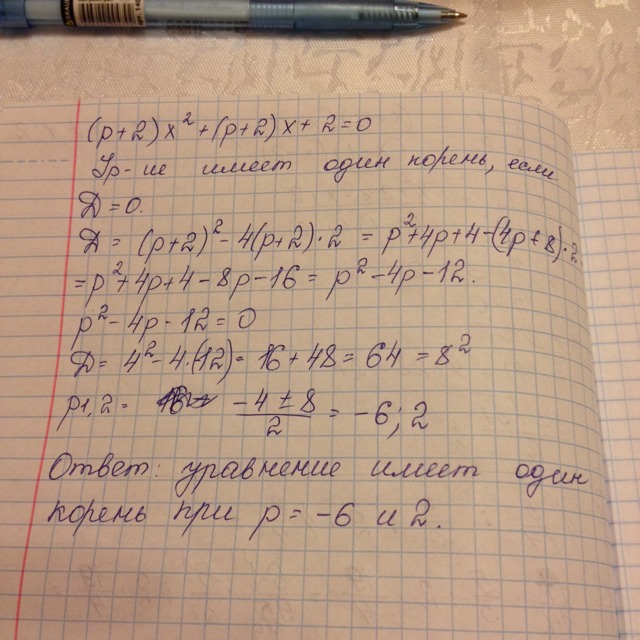 (p+2)x²+(p+2)x+2=0
Ур-ие имеет один корень, если
D=0.
D= (p+2)²-4(p+2)·2 = p²+4p+4-(4p+8)·2
=p²+4p+4-8p-16= p²-4p-12.
p²-4p-12=0
D= 4²-4·(12)= 16+48= 64 =8²
p1,2= -4±8/2 = -6; 2
Ответ: уравнение имеет один
корень при p= -6 и 2.